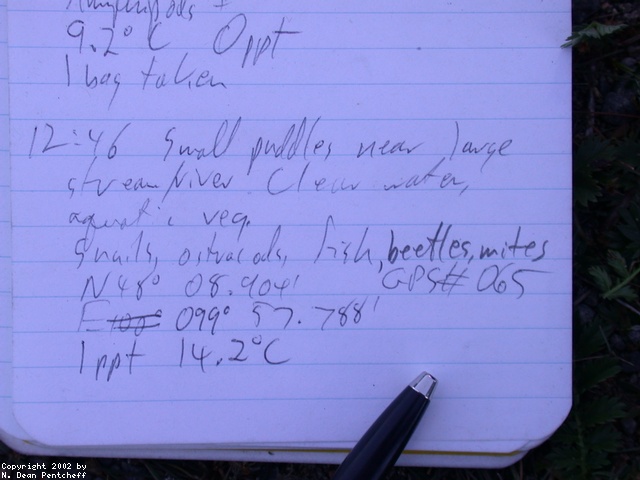 Amphipods +
9.2° C 0ppt
1 bag taken
12:46 Small puddles near large
stream/river. Clear water,
aquatic veg.
Snails, ostracods, fish, beetles, mites
N48° 08.904' GPS# 065
E 100° 099° 57.788'
1ppt 14.2°C
Copyright 2002 by
N. Dean Pentcheff